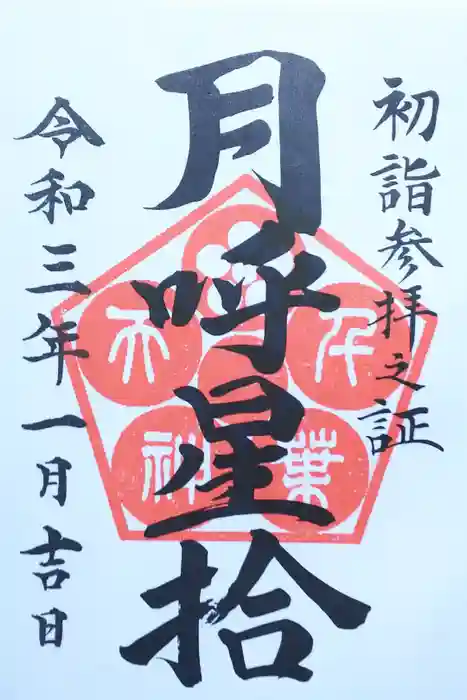 初詣参拝之証
月呼星拾
令和三年一月吉日
千葉
天神